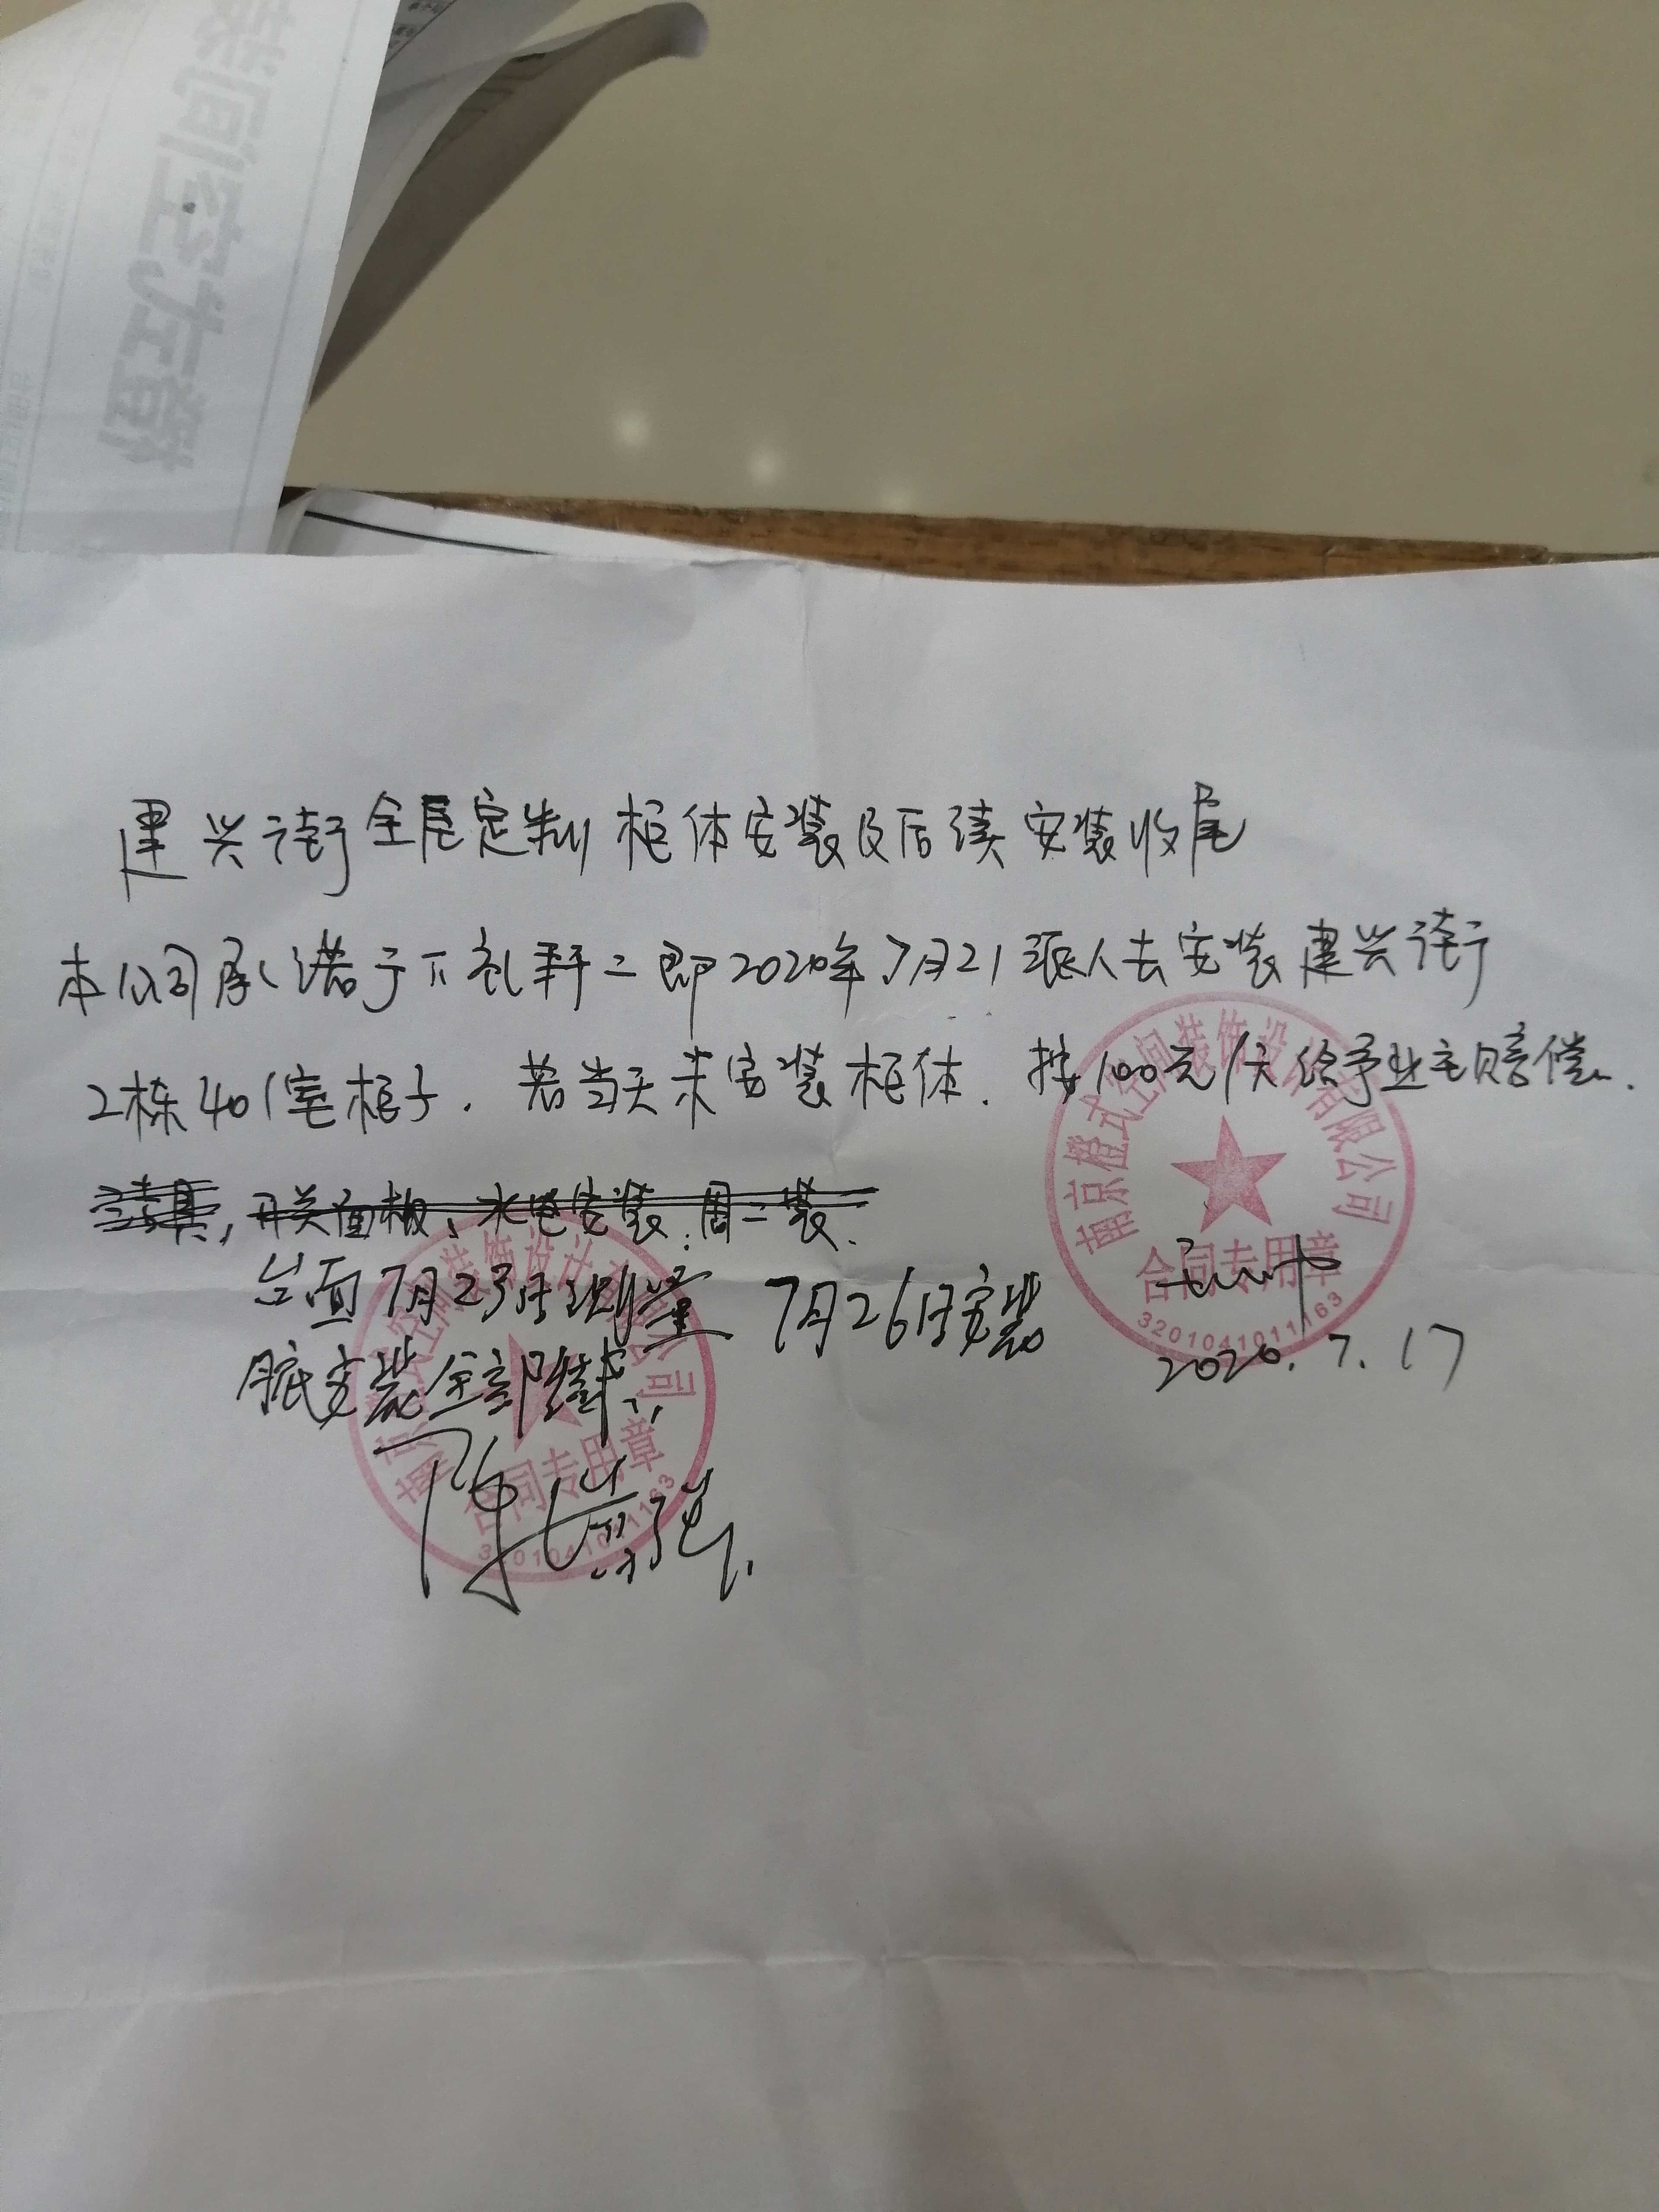 装间空左群
建兴街全屋定制柜体安装及后续安装收尾
本公司承诺于下礼拜二即2020年7月21派人去安装建兴街
2栋401室柜子.若当天未安装柜体.按100元/天给予业主赔偿.
开关面板、水电安装:周二装.
台面7月23日测量 7月26日安装
月底安装全部结束.
陈崇强.
2020.7.17
南京橙式空间装饰设计有限公司
合同专用章
3201041011163
南京橙式空间装饰设计有限公司
合同专用章
3201041011163